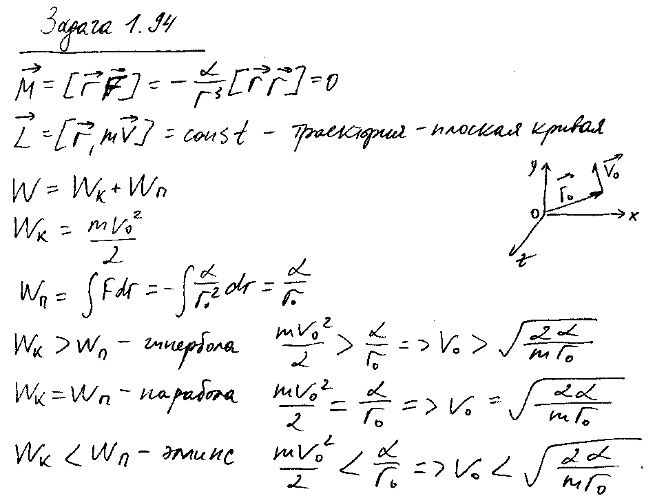 Задача 1.94
M⃗ = [r⃗ F⃗] = - α/r³ [r⃗ r⃗] = 0
L⃗ = [r⃗, mV⃗] = const - траектория - плоская кривая
W = Wк + Wп
Wк = mV₀²/2
y r⃗₀ V⃗₀ 0 x z
Wп = ∫Fdr = -∫ α/r₀² dr = α/r₀
Wк > Wп - гипербола mV₀²/2 > α/r₀ => V₀ > √(2α/mr₀)
Wк = Wп - парабола mV₀²/2 = α/r₀ => V₀ = √(2α/mr₀)
Wк < Wп - элипс mV₀²/2 < α/r₀ => V₀ < √(2α/mr₀).